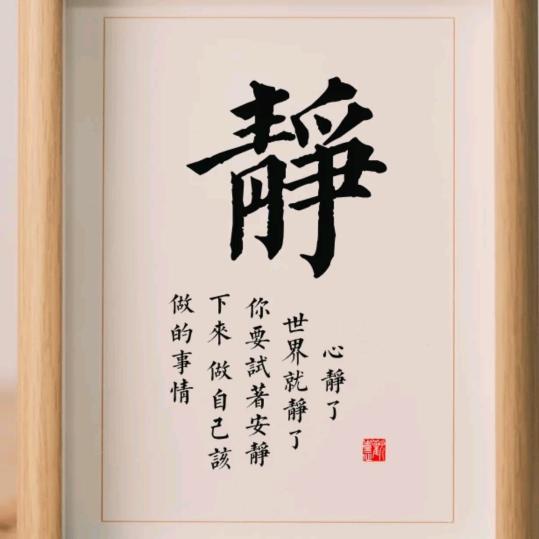 靜
心靜了
世界就靜了
你要試著安靜
下來 做自己該
做的事情